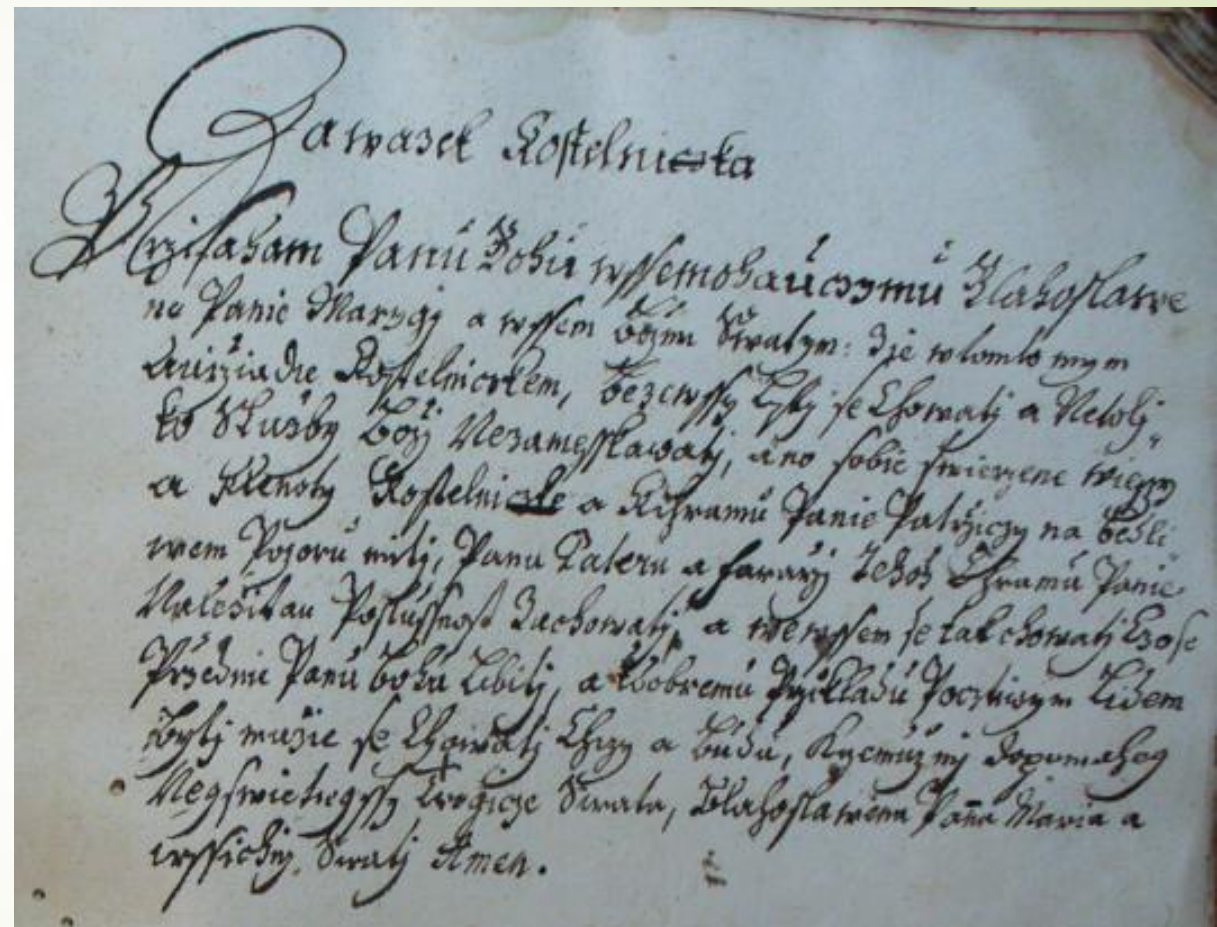 Zawazek Kostelniczka
Przisaham Panu Bohu wssemohauczymu Blahoslawe
ne Panie Marzygi a wssem Božym Swatym: Zie wtomto mym
Auržiadie Kostelniczkem, bezewssy Lsty se Chowatj a Netolj
ko Službu Božj Nezamesskawatj, ano sobie swierzene wieczy
a Klenoty Kostelnicke a Kchramu Panie Patržiczy na
wem Pozoru mitj, Panu Pateru a Chramu Panie
Naležitau Poslussnost Zachowatj, a wewssem se tak chowatj
Przednie Panu Bohu Libitj, a kdobremu Przikladu Pocztiwym Lidem
Bytj muže se Chowatj Chczy a Budu, Kczemuž mj dopomahej
Negswietiegssy Trogicze Swata, Blahoslawena Pana Maria a
wssichnj Swatj Amen.